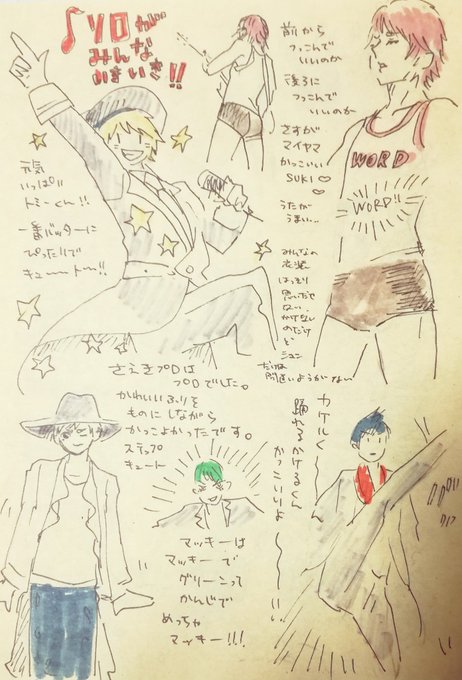 ♪ソロが
みんな
おきいさ!!
元気
いっぱい
トミーくん!!
一番バッターに
ぴったりで
キュートー!!
前から
つっこんで
いいのか
後ろに
つっこんで
いいのか
さすが
マイヤマ
かっこいい
SUKI♡
うたが
うまい…
みんなの
衣装
はっきり
思いだせ
ない
のだけ
ど
ジュン
だけは
間違いようがない
WORD
WORD!!
さえきプロは
プロでした。
かわいいふりを
ものにしながら
かっこよかったです。
ステップ
キュート
カケルく〜ん
踊れるかけるくん
かっこいいよ〜
マッキーは
マッキーで
グリーンって
かんじで
めっちゃ
マッキー!!!